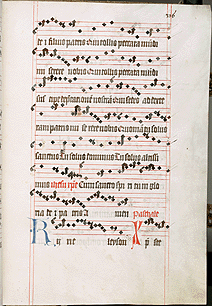 te i filius patris Qui tollis peccata mundi
mi serere nobis Qui tollis peccata mundi
sus cipe deprecationem nostram Qui sedes ad dexte
ram patris mi se rere nobis Quoniam tu solus
sanctus Tu solus dominus Tu solus altissi
mus ihesu xpe Cum sancto spi ri tu in glo
ria de i pa tris A men Paschale
K y rie leyson Xp ste